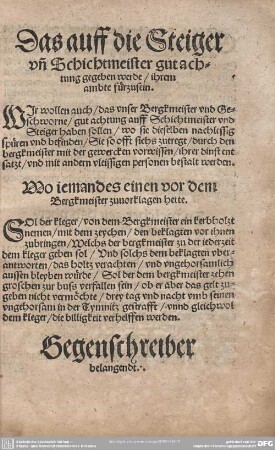 Das auff die Steiger
vñ Schichtmeister gut ach-
tung gegeben werde / ihrem
ambte fürzusein.
WIr wollen auch / das vnser Bergkmeister vnd Ge-
schworne / gut achtung auff Schichtmeister vnd
Steiger haben sollen / wo sie dieselben nachlessig
spüren vnd befinden / Sie so offt siehs zutregt / durch den
bergkmeister mit der gewercken vorwissen / ihrer dinst ent
satzt / vnd mit andern vleissigen personen bestalt werden.
Wo iemandes einen vor dem
Bergkmeister zuuorklagen hette.
SOl der kleger / von dem Bergkmeister ein kerbholtz
nemen / mit dem zeychen / den beklagten vor ihnen
zubringen / Welchs der bergkmeister zu der iederzeit
dem kleger geben sol / Vnd solchs dem beklagten vber-
antworten / das holtz verachten / vnd vngehorsamlich
aussen bleyben würde / Sol der dem bergkmeister zehen
groschen zur buss verfallen sein / ob er aber das gelt zu-
geben nicht vermöchte / drey tag vnd nacht vmb seinen
vngehorsam in der Temnitz gestrafft / vnnd gleichwol
dem kleger / die billigkeit verhelffen werden.
Gegenschreiber
belangendt.